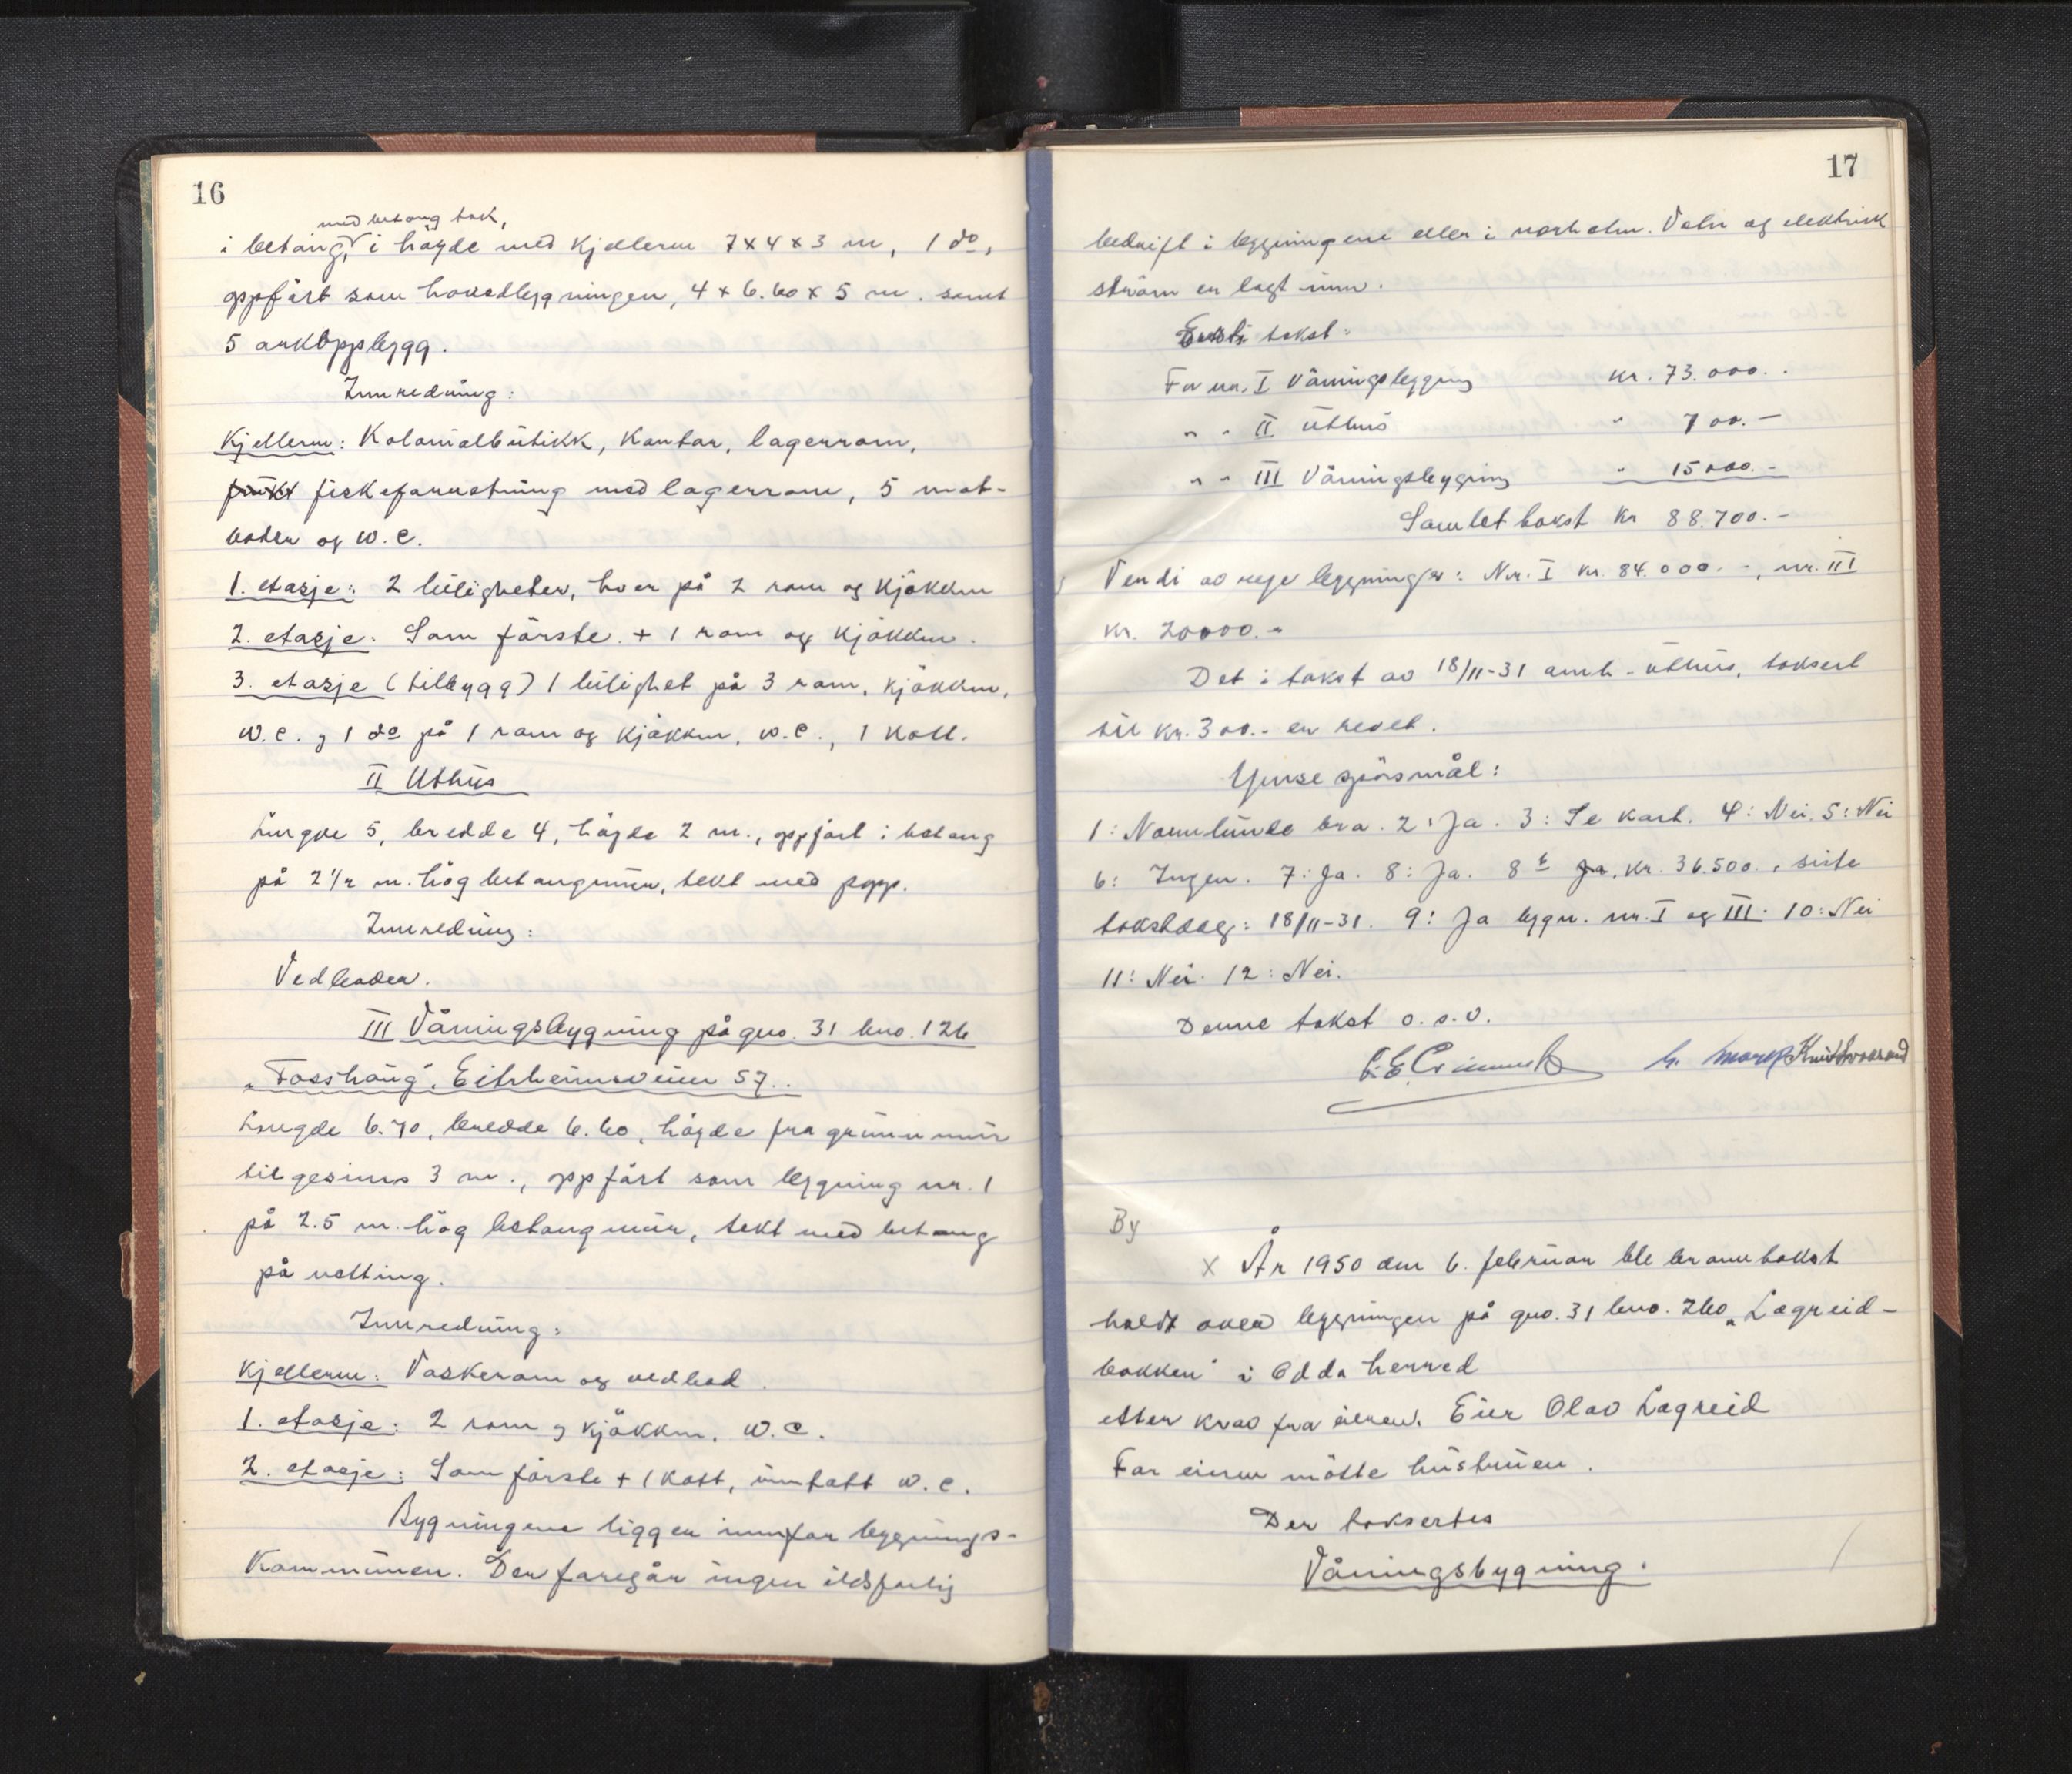 16
med betong tak,
i betong, i høyde med kjelleren 7x4x3 m, 1 do,
oppført som hovedbygningen, 4 x 6.60 x 5 m. samt
5 arkoppbygg.
Innredning:
Kjelleren: Kolonialbutikk, kontor, lagerrom,
fiskeforretning med lagerrom, 5 mat-
boder og W.C.
1. etasje: 2 leiligheter, hver på 2 rom og kjøkken
2. etasje: Som første + 1 rom og kjøkken.
3. etasje (tilbygg) 1 leilighet på 3 rom, kjøkken,
W.C. og 1 do på 1 rom og kjøkken, W.C., 1 kott.
II Uthus
Lengde 5, bredde 4, høyde 2 m., oppført i betong
på 2 1/2 m. høg betongmur, tekt med papp.
Innredning:
Vedboder.
III Våningsbygning på gno. 31 bno. 126
"Fosshaug", Eitrheimsveien 57.
Lengde 6.70, bredde 6.60, høyde fra grunnmur
til gesims 3 m., oppført som bygning nr. 1
på 2.5 m. høg betongmur, tekt med betong
på netting.
Innredning:
Kjelleren: Vaskerom og vedbod.
1. etasje: 2 rom og kjøkken, W.C.
2. etasje: Som første + 1 kott, inntatt W.C.
Bygningene ligger innfor bygnings-
kommunen. Der foregår ingen ildsfarlig
17
bedrift i bygningene eller i nærheten. Vatn og elektrisk
strøm er lagt inn.
takst:
For nr. I Våningsbygning kr. 73.000.-
" " II Uthus " 700.-
" " III Våningsbygning " 15000.-
Samlet takst kr 88.700.-
Verdi av nye bygninger: Nr. I kr. 84.000.-, nr. III
kr. 20000.-
Det i takst av 18/11-31 omh. uthus, taksert
til kr. 300.- er revet.
Ymse spørsmål:
1: Normtunde bra. 2: Ja. 3: Se kart. 4: Nei. 5: Nei
6: Ingen. 7: Ja. 8: Ja. 8 b Ja, kr. 36.500., siste
takstdag: 18/11-31. 9: Ja bygn. nr. I og III. 10: Nei
11: Nei. 12: Nei.
Denne takst o.s.v.
By
x År 1950 den 6. februar ble branntakst
holdt over bygningen på gno. 31 bno. 260 "Lægreid-
bakken" i Odda herred
etter krav fra eieren. Eier Olav Lægreid
For eieren møtte hustruen.
Der taksertes
Våningsbygning.